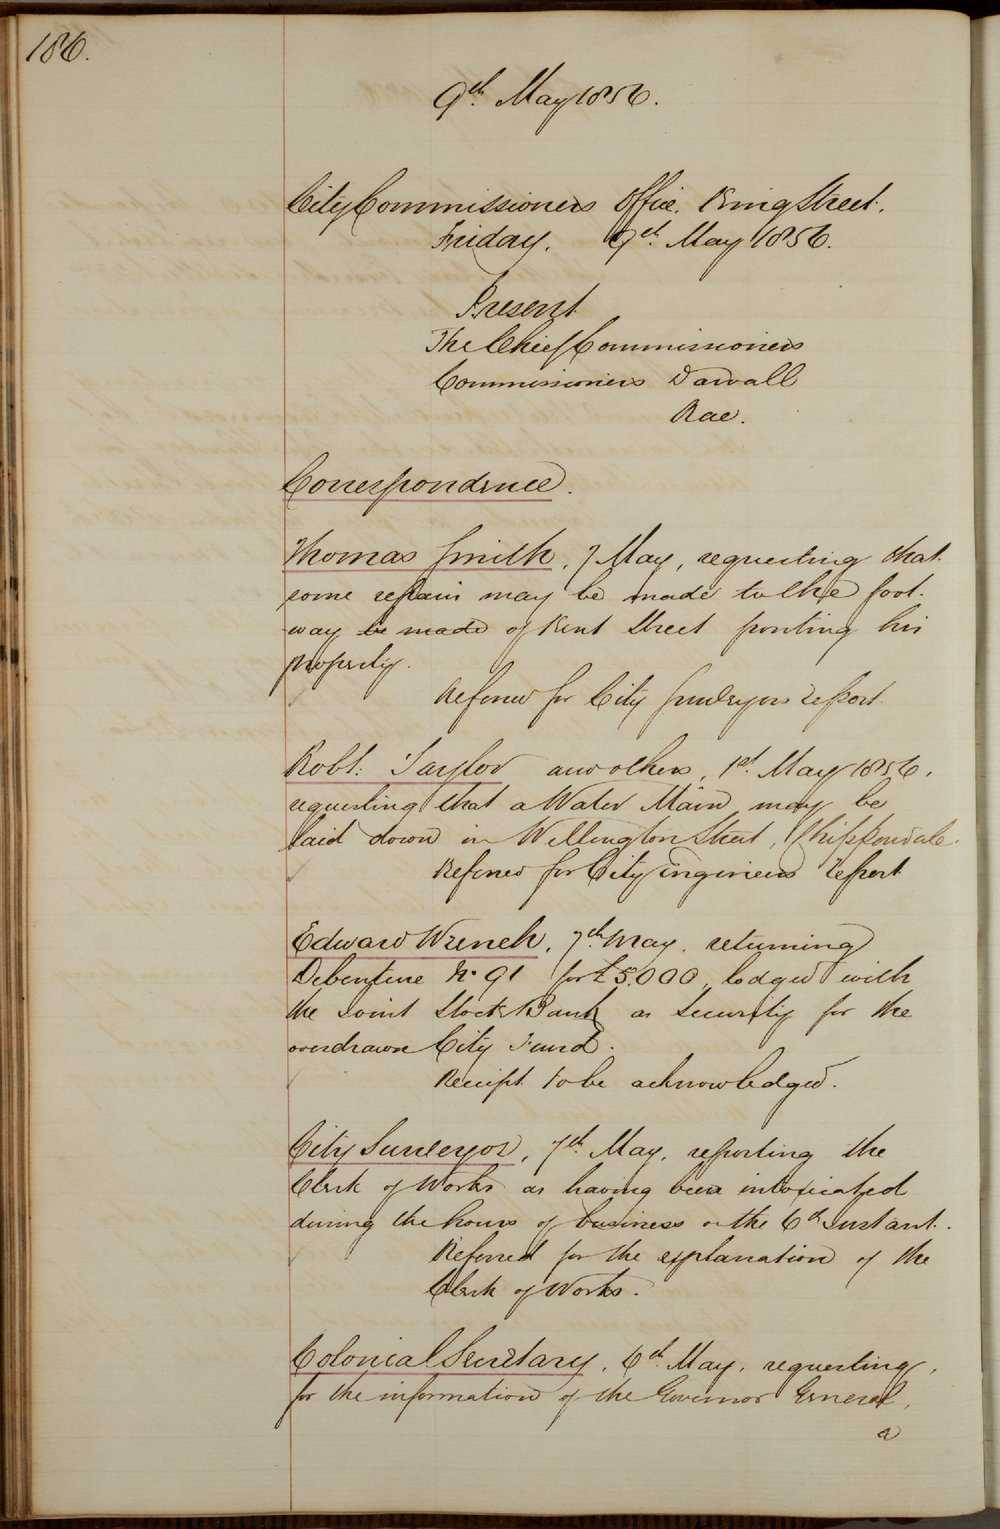 186.
9th May 1856.
City Commissioners Office, King Street,
Friday, 9th May 1856.
Present
The Chief Commissioners
Commissioners Darvall
Rae.
Correspondence.
Thomas Smith, 7 May, requesting that
some repairs may be made to the foot-
way be made of Kent Street fronting his
property.
Referred for City Surveyors report.
Robt: Taylor and others, 1st May 1856,
requesting that a Water Main may be
laid down in Wellington Street, Chippendale.
Referred for City Engineers report
Edward Wrench, 7th May, returning
Debenture No 91 for £5.000, lodged with
the Joint Stock Bank as security for the
overdrawn City Fund.
Receipt to be acknowledged.
City Surveyor, 7th May, reporting the
Clerk of Works as having been intoxicated
during the hours of business on the 6th instant.
Referred for the explanation of the
Clerk of Works.
Colonial Secretary, 6th May, requesting,
for the information of the Governor General,
a